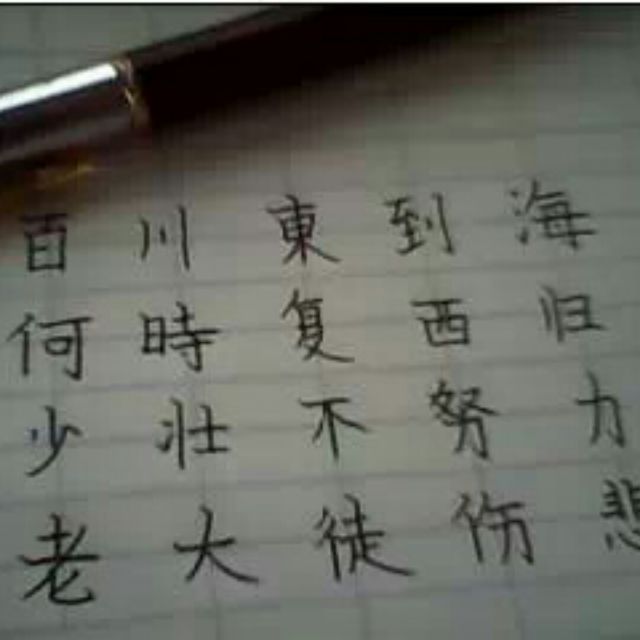 百川東到海
何時复西归
少壮不努力
老大徒伤悲